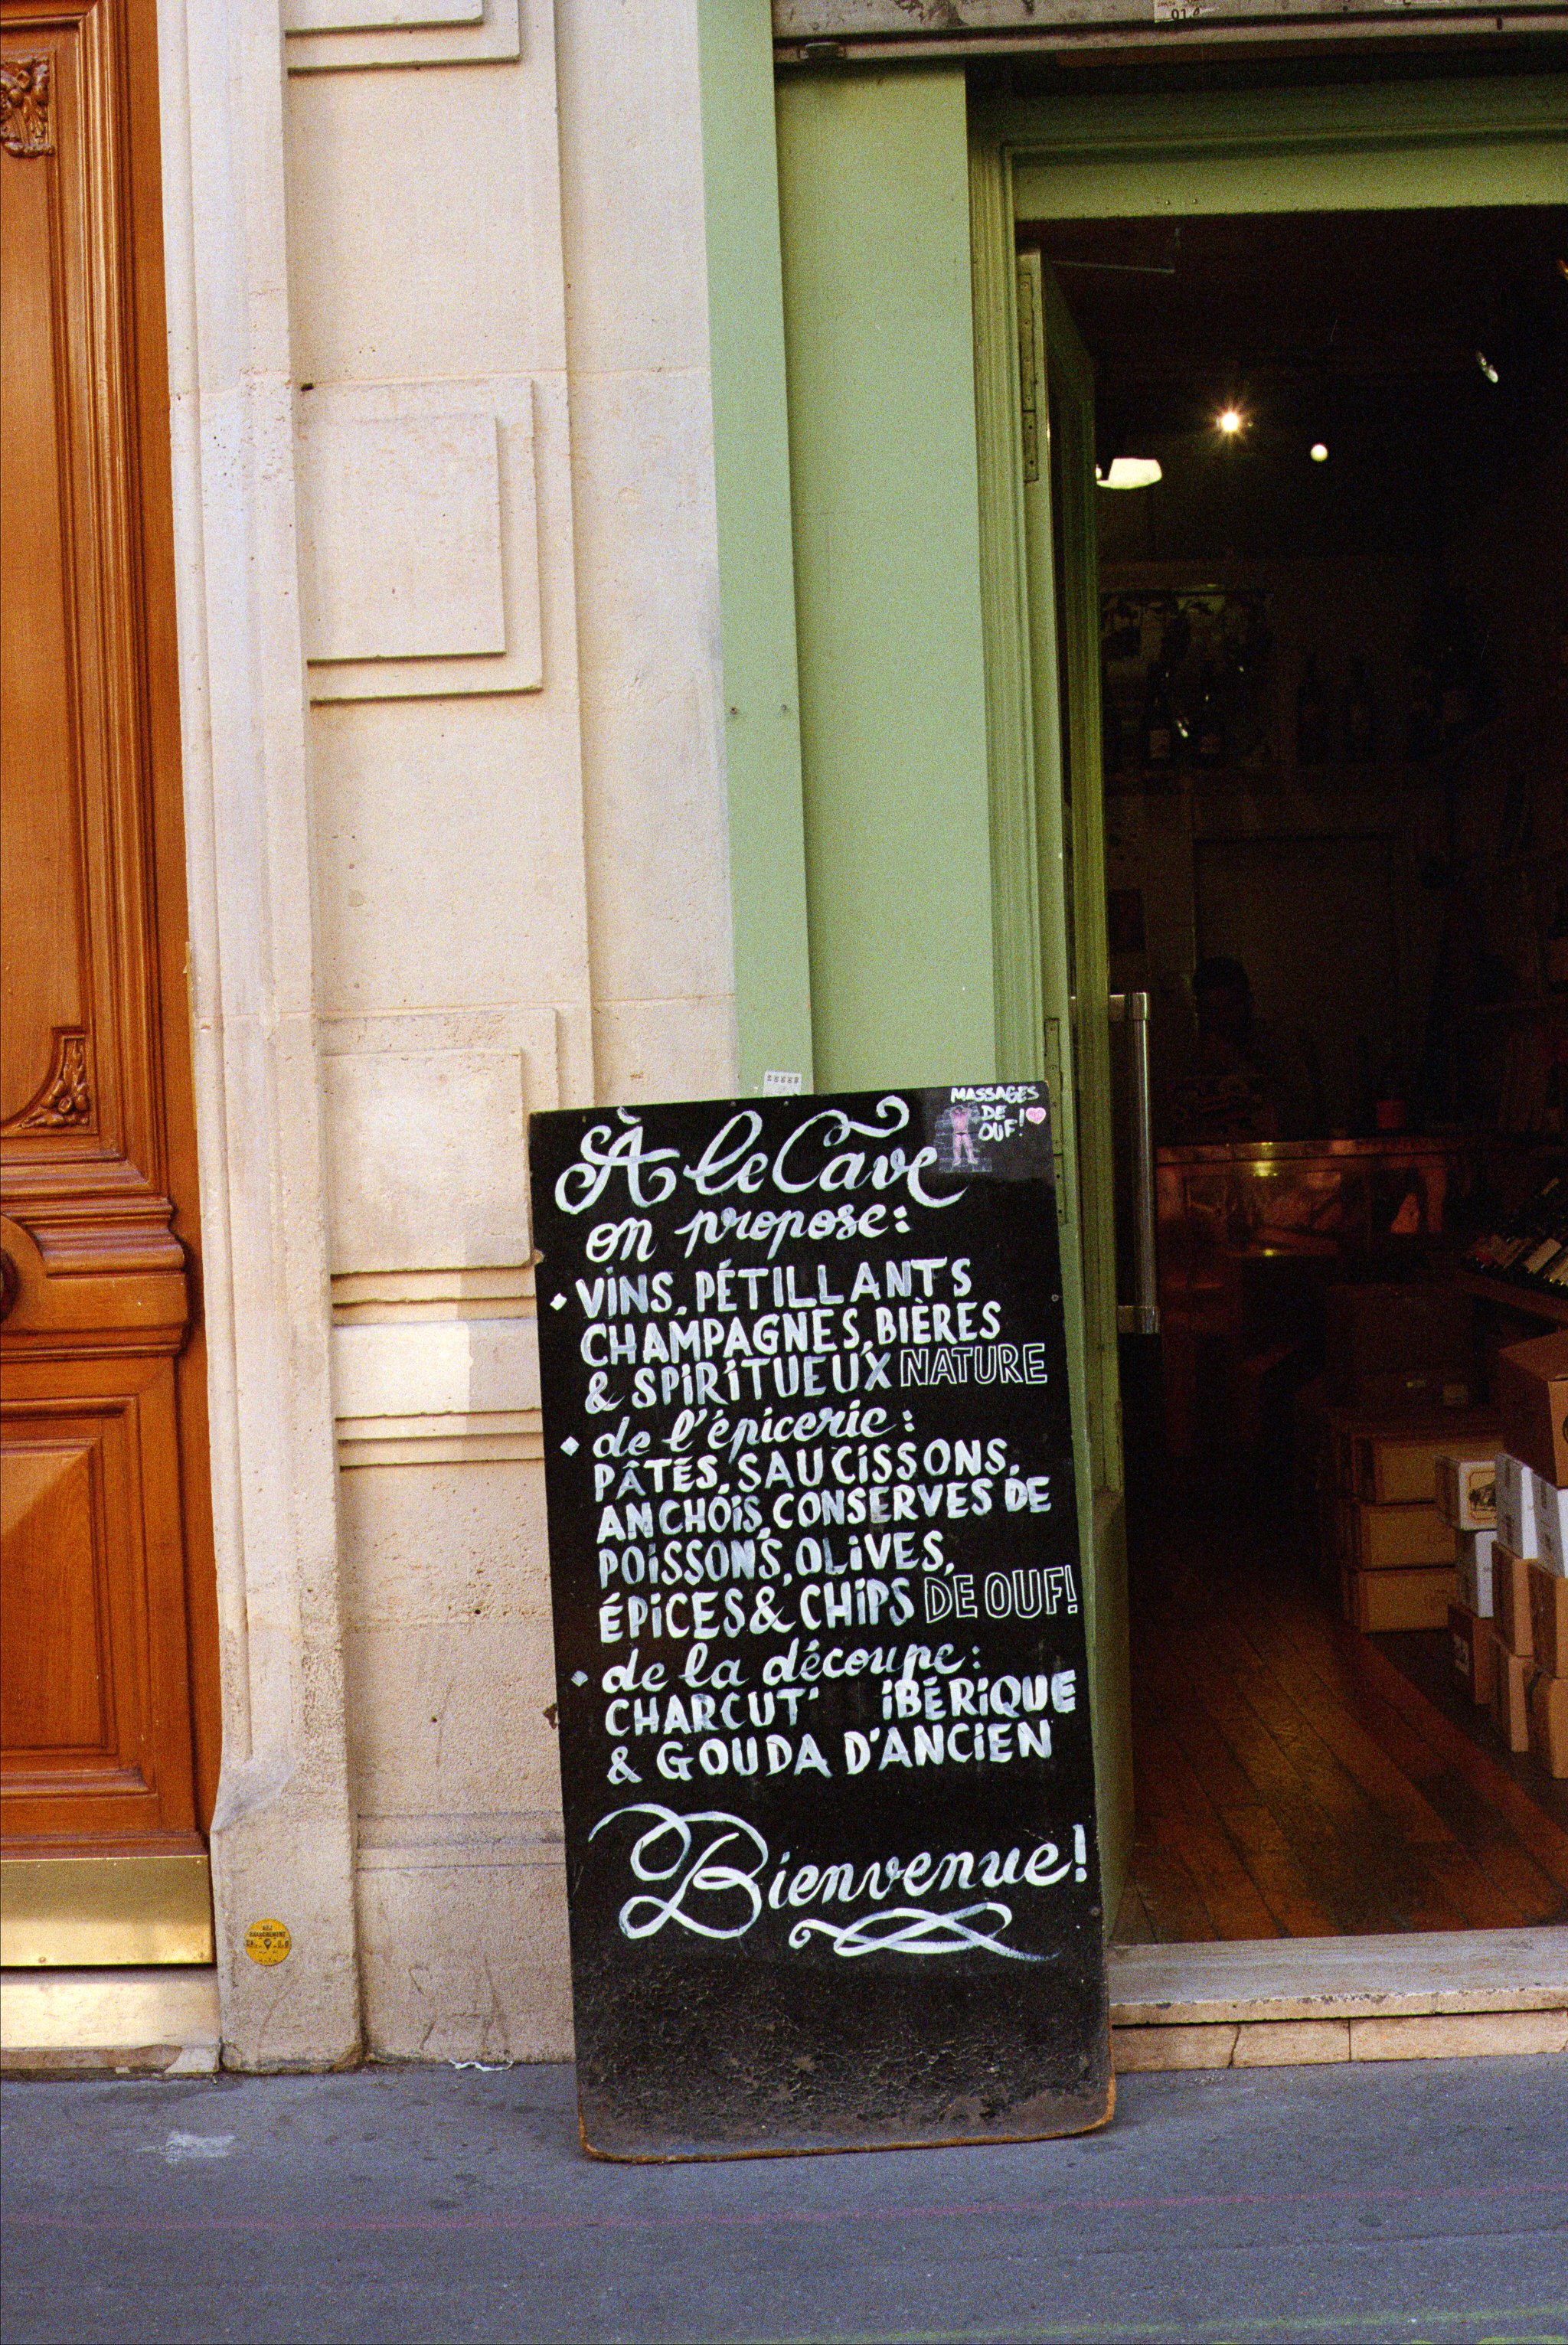 À le Cave
on propose:
VINS, PÉTILLANTS
CHAMPAGNES, BIÈRES
& SPIRITUEUX NATURE
de l'épicerie:
PÂTÉS, SAUCISSONS,
ANCHOIS, CONSERVES DE
POISSONS, OLIVES,
ÉPICES & CHIPS DE OUF!
de la découpe:
CHARCUT' IBÉRIQUE
& GOUDA D'ANCIEN
Bienvenue!
MASSAGES
DE
OUF!